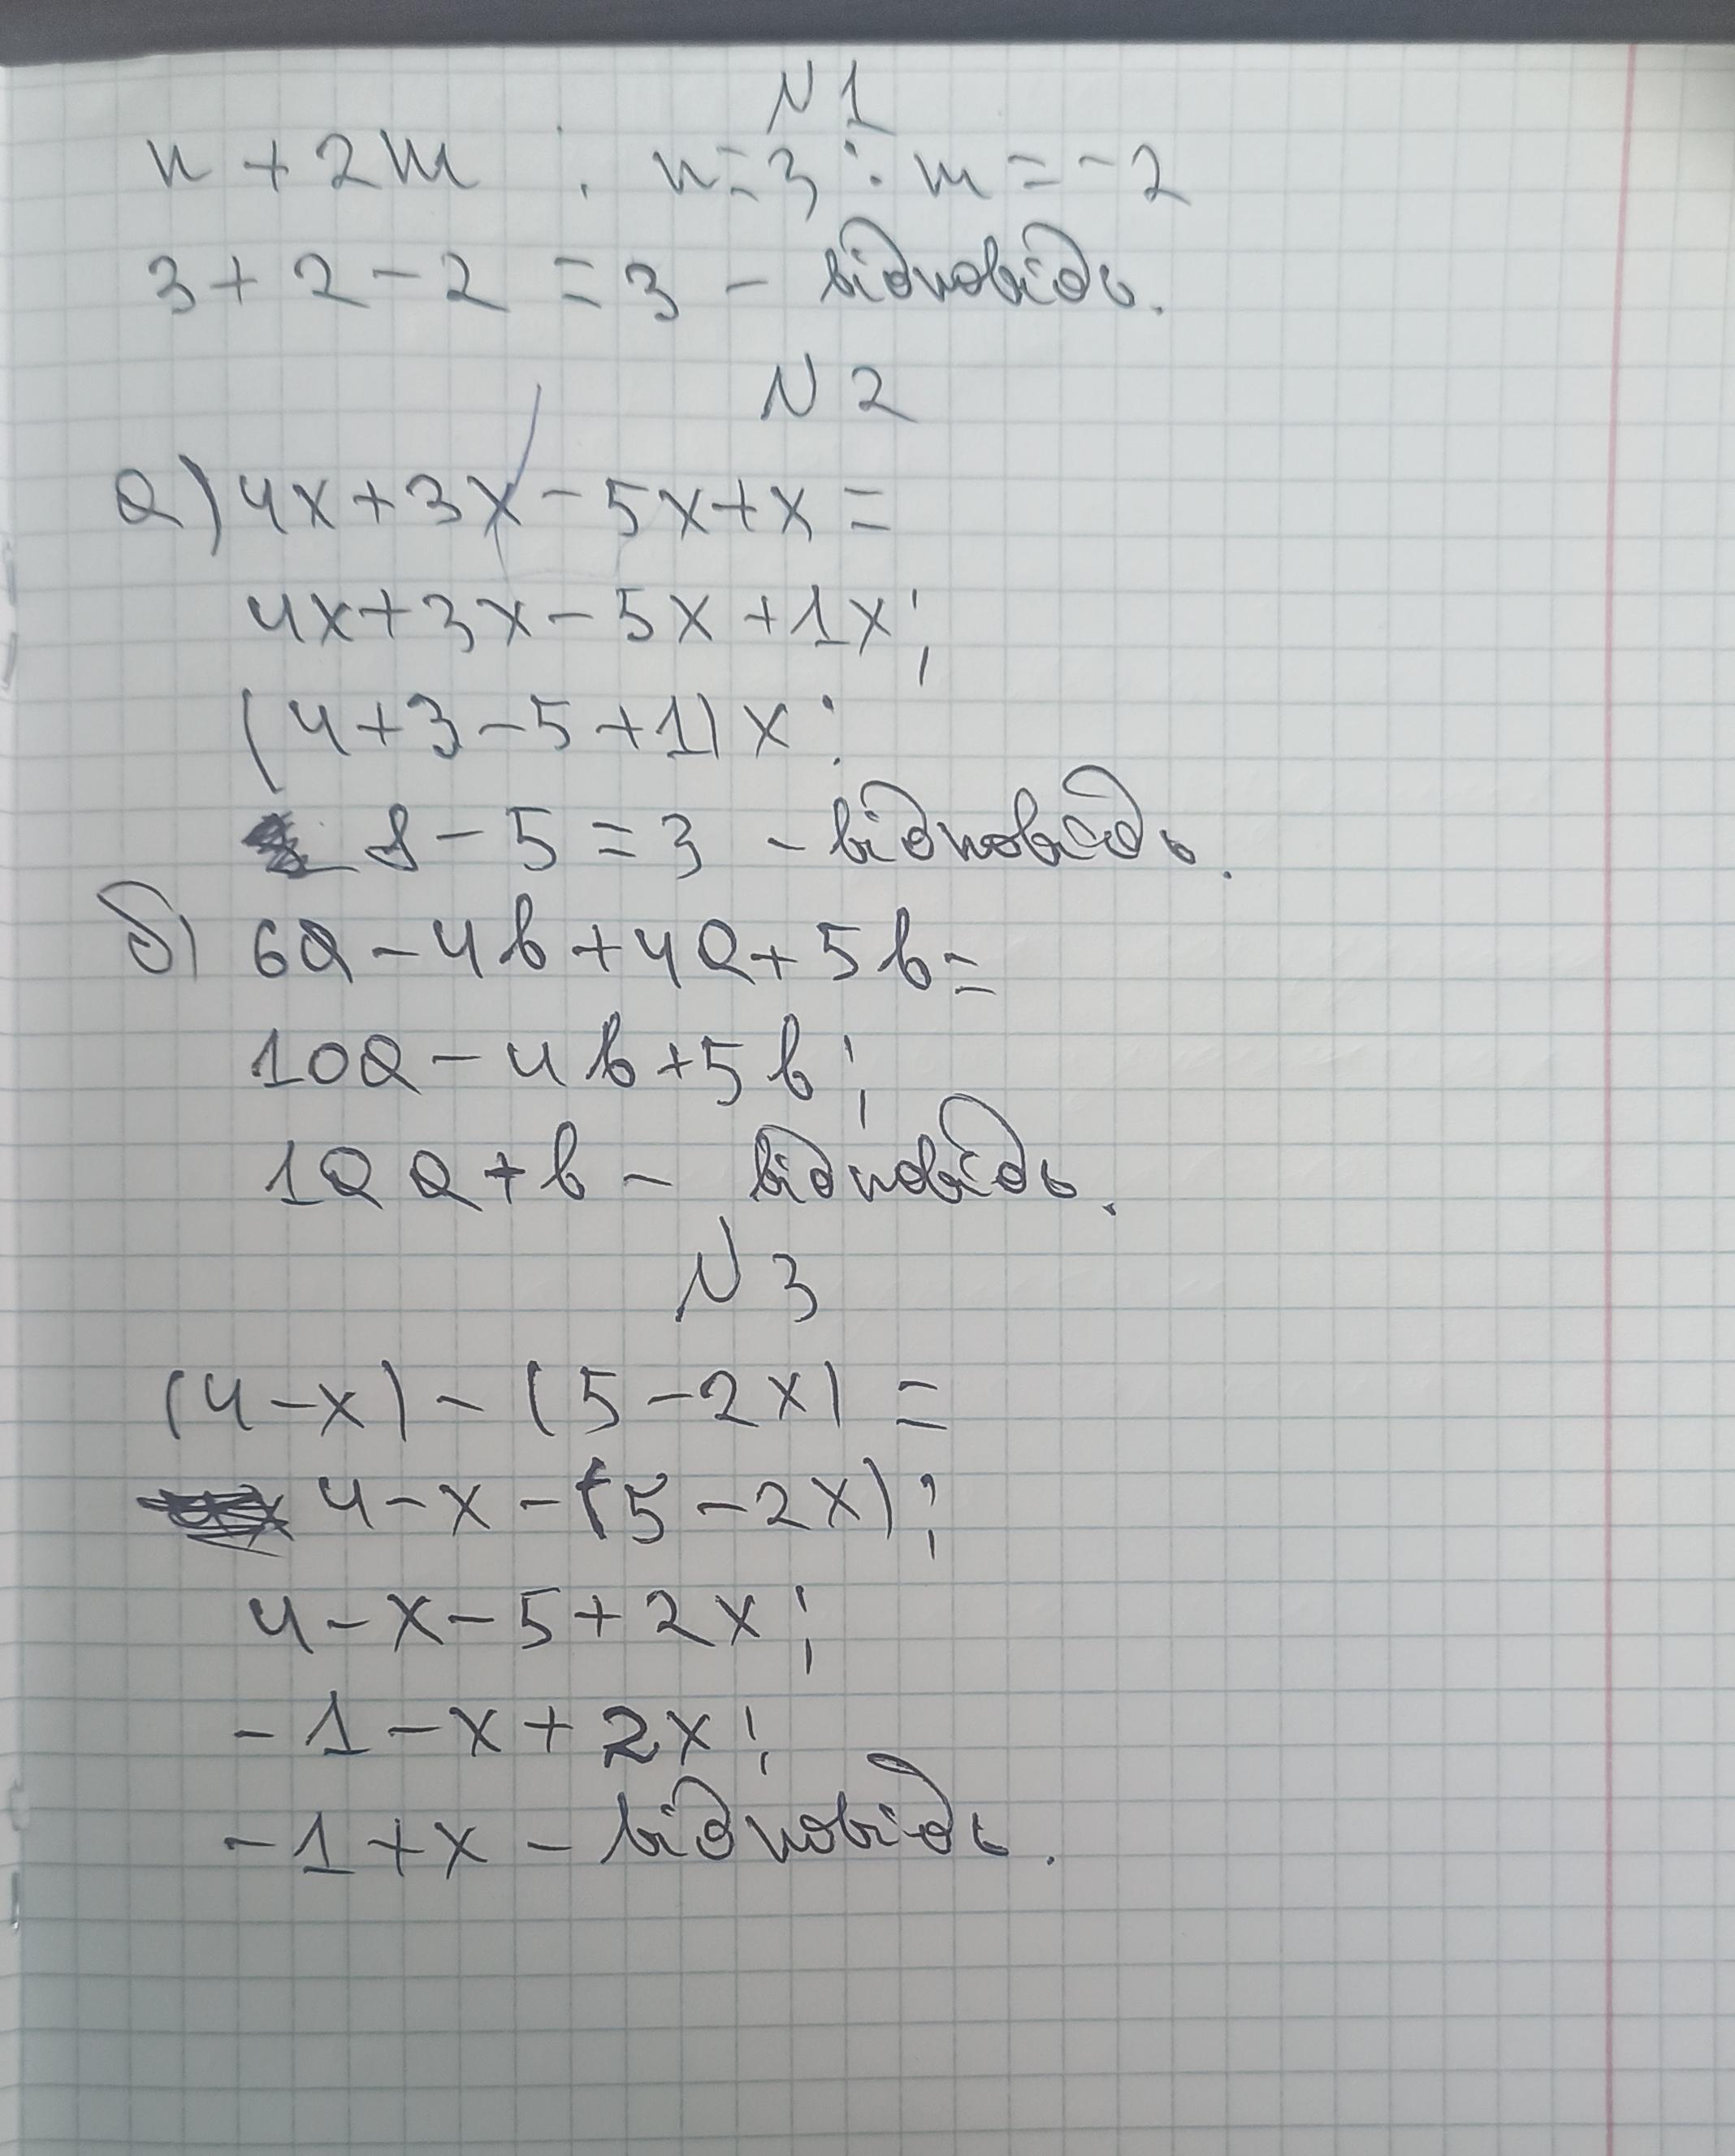 N 1
n + 2m ; n = 3 ; m = -2
3 + 2 - 2 = 3 - відповідь.
N 2
а) 4x + 3x - 5x + x =
4x + 3x - 5x + 1x;
(4 + 3 - 5 + 1) x ;
8 - 5 = 3 - відповідь.
б) 6a - 4b + 4a + 5b =
10a - 4b + 5b ;
10a + b - відповідь.
N 3
(4 - x) - (5 - 2x) =
4 - x - (5 - 2x) ;
4 - x - 5 + 2x ;
- 1 - x + 2x ;
- 1 + x - відповідь.